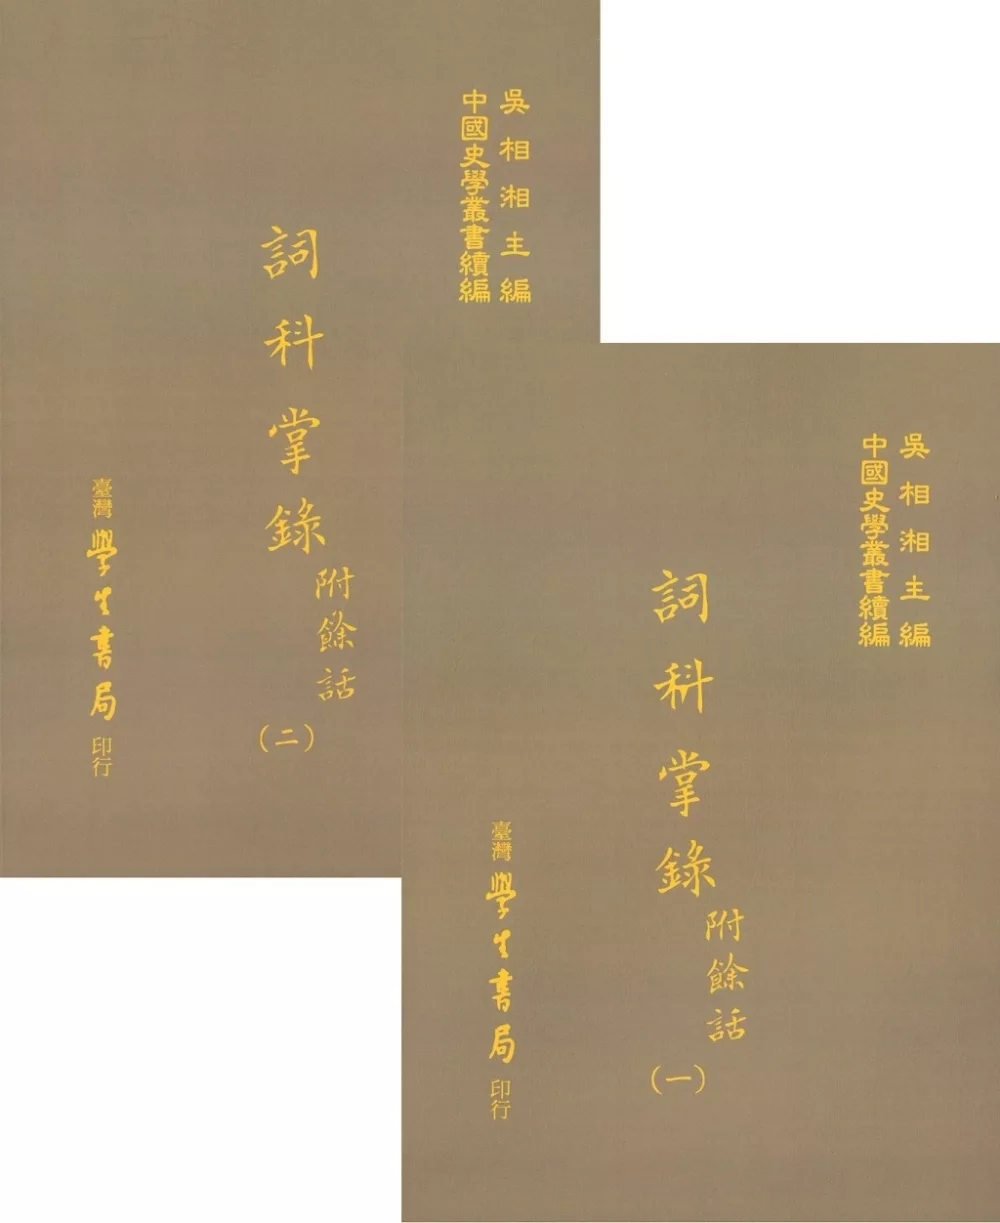 吳相湘主編
中國史學叢書續編
詞科掌錄
附餘話
(二)
臺灣學生書局印行
吳相湘主編
中國史學叢書續編
詞科掌錄
附餘話
(一)
臺灣學生書局印行